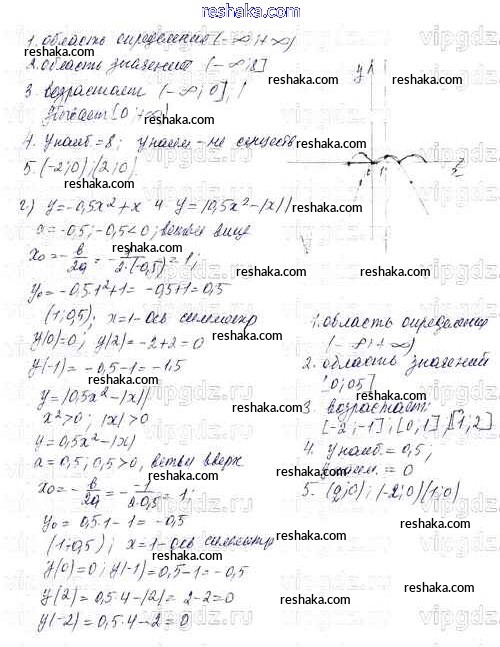 reshaka.com
1. область определения (-∞; +∞)
2. область значений (-∞; 8]
3. возрастает (-∞; 0];
убывает [0; +∞)
4. y наиб = 8; y наим - не существ
5. (-2; 0); (2; 0).
г) y = -0,5x² + x и y = |0,5x² - |x||
a = -0,5; -0,5 < 0; ветви вниз
x₀ = -в/2a = -1/2·(-0,5) = 1;
y₀ = -0,5·1² + 1 = -0,5 + 1 = 0,5
(1; 0,5); x = 1 - ось симметр
y(0) = 0; y(2) = -2 + 2 = 0
y(-1) = -0,5 - 1 = -1,5
y = |0,5x² - |x||
x² > 0; |x| > 0
y = 0,5x² - |x|
a = 0,5; 0,5 > 0, ветви вверх
x₀ = -в/2a = - -1/2·0,5 = 1;
y₀ = 0,5·1 - 1 = -0,5
(1; -0,5); x = 1 - ось симметр
y(0) = 0; y(-1) = 0,5 - 1 = -0,5
y(2) = 0,5·4 - |2| = 2 - 2 = 0
y(-2) = 0,5·4 - 2 = 0
y
x
1. область определения
(-∞; +∞)
2. область значений
[0; 0,5]
3. возрастает:
[-2; -1]; [0, 1]; [1; 2]
4. y наиб. = 0,5;
y наим. = 0
5. (2; 0); (-2; 0) (1; 0)
reshaka.com